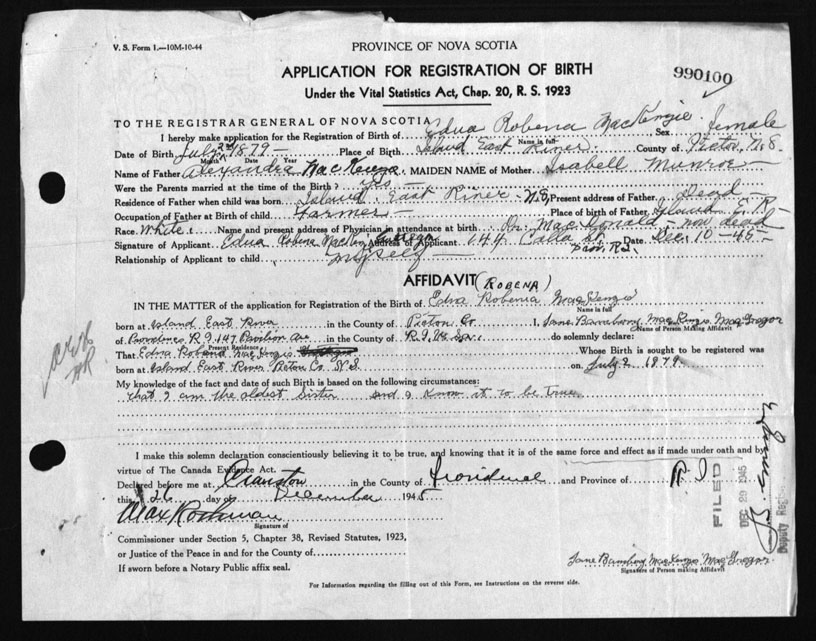 V. S. Form 1.—10M-10-44
PROVINCE OF NOVA SCOTIA
APPLICATION FOR REGISTRATION OF BIRTH
990100
Under the Vital Statistics Act, Chap. 20, R. S. 1923
TO THE REGISTRAR GENERAL OF NOVA SCOTIA
I hereby make application for the Registration of Birth of Edna Robena MacKenzie Sex female
Name in full
Date of Birth July 2nd 1879 - Place of Birth Island East River County of Pictou N.S.
Month Date Year
Name of Father Alexandra MacKenzie, MAIDEN NAME of Mother Isabell Munroe
Were the Parents married at the time of the Birth? yes
Residence of Father when child was born Island East River - N.S, Present address of Father Dead
Occupation of Father at Birth of child Farmer Place of birth of Father Island E.R.
Race White Name and present address of Physician in attendance at birth Dr. MacDonald - now dead
Signature of Applicant Edna Robena MacKenzie Address of Applicant 144 Calla St. Date Dec. 10-45
Prov. R.I.
Relationship of Applicant to child myself
AFFIDAVIT (ROBENA)
IN THE MATTER of the application for Registration of the Birth of Edna Robenia MacKenzie
Name in full
born at Island East River in the County of Pictou Co I, Jane MacKenzie MacGregor
Name of Person Making Affidavit
of R.I 147 Pavilion Ave R.I. do solemnly declare:
Present Residence
That Edna Robena MacKenzie Whose Birth is sought to be registered was
born at Island East River Pictou Co. N.S. on July 2 1879
My knowledge of the fact and date of such Birth is based on the following circumstances:
that I am the oldest sister and I know it to be true
I make this solemn declaration conscientiously believing it to be true, and knowing that it is of the same force and effect as if made under oath and by
virtue of The Canada Evidence Act.
Declared before me at Cranston in the County of Providence and Province of R.I
this 26 day of December 1945
Max
Signature of
Commissioner under Section 5, Chapter 38, Revised Statutes, 1923,
or Justice of the Peace in and for the County of
If sworn before a Notary Public affix seal.
FILED
DEC 29 1945
Deputy Regis
Jane MacKenzie MacGregor
Signature of Person making Affidavit
For Information regarding the filling out of this Form, see Instructions on the reverse side.